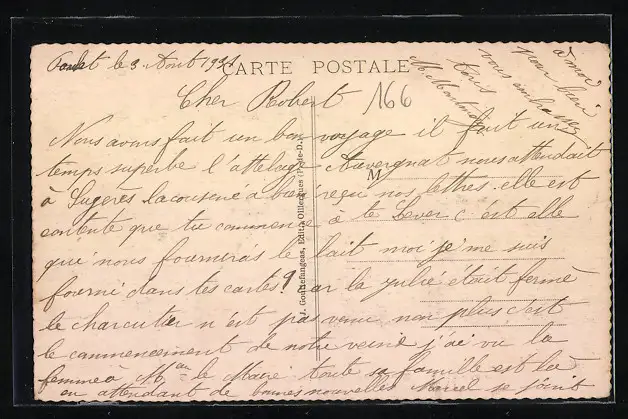 le 3 Août 1931
CARTE POSTALE
166
Cher Robert
Nous avons fait un bon voyage il fait un
temps superbe l'attelage Auvergnat nous attendait
M
à Sugères la cousine a bien reçu nos lettres elle est
contente que tu commence à te lever c'est elle
qui nous fournira le lait moi je me suis
fourni dans tes cartes car la Julie était fermé
le charcutier n'est pas venu non plus c'est
le commencement de notre veine j'ai vu la
femme à Mr le Maire toute sa famille est là
en attendant de bonnes nouvelles Marcel se joint
à moi
pour bien
vous embrasser
tous
J. Gouttefangeas, Edit., Olliergues (P.-de-D.)